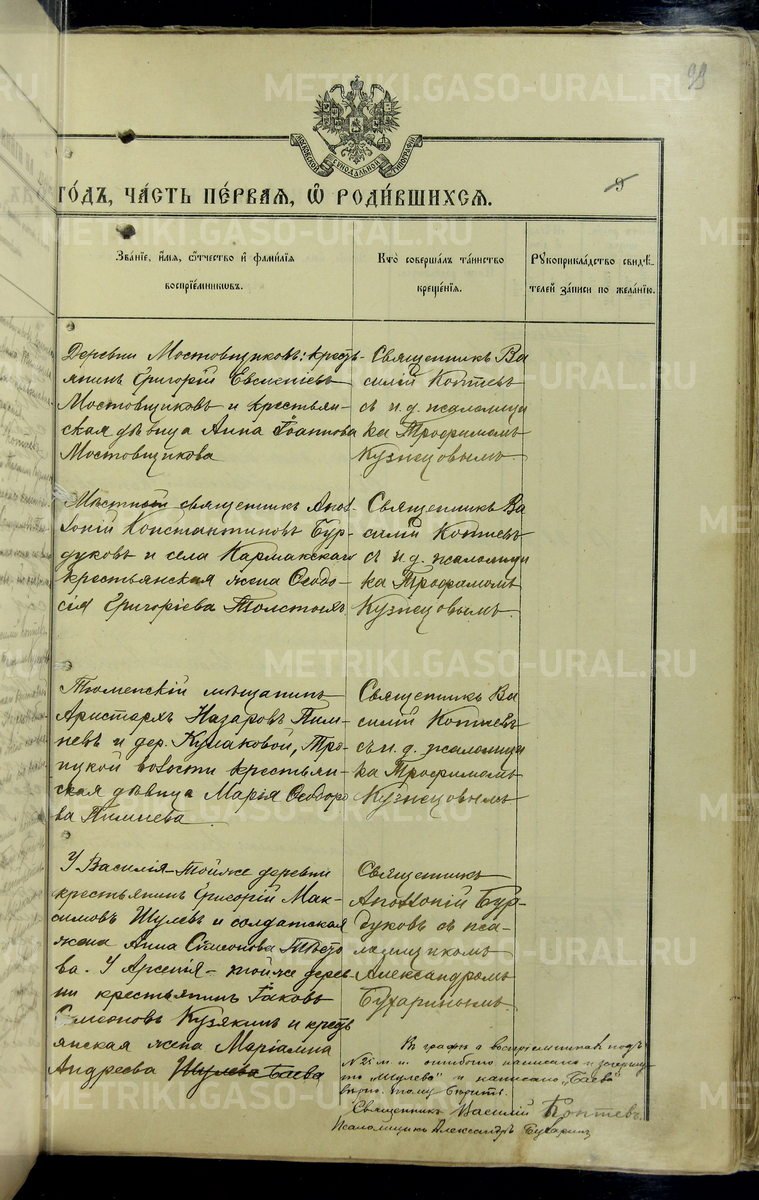 99
МОСКОВСКОЙ СѴНОДАЛЬНОЙ ТИПОГРАФІИ
ГО́ДЪ, ЧА́СТЬ ПЕ́РВАЯ, Ѽ РОДИ́ВШИХСЯ.
9
Зва́нїе, и́мя, ѻ҆́тчество и҆ фами́лїя
воспрїе́мниковъ.
Кто̀ соверша́лъ та́инство
креще́нїя.
Рꙋкоприкла́дство свидѣ́-
телей за́писи по жела́нїю.
Деревни Мостовщиковъ: кресть-
янинъ Григорій Евсентіевъ
Мостовщиковъ и крестьян-
ская дѣвица Анна Іоаннова
Мостовщикова
Священникъ Ва
силій Коптевъ
съ и. д. псаломщи
ка Трофимомъ
Кузнецовымъ
Мѣстный священникъ Апол-
лоній Константиновъ Бур-
дуковъ и села Кармакскаго
крестьянская жена Ѳеодо-
сія Григоріева Толстыхъ
Священникъ Ва
силій Коптевъ
съ и. д. псаломщи
ка Трофимомъ
Кузнецовымъ.
Тюменскій мѣщанинъ
Аристархъ Назаровъ Пим-
невъ и дер. Кулаковой, Тро-
ицкой волости крестьян-
ская дѣвица Марія Ѳеодоро
ва Пимнева
Священникъ Ва
силій Коптевъ
съ и. д. псаломщи
ка Трофимомъ
Кузнецовымъ
У Василія – тойже деревни
крестьянинъ Григорій Мак-
симовъ Шулевъ и солдатская
жена Анна Симонова
ва. У Арсенія – тойже дерев-
ни крестьянинъ Іаковъ
Симеоновъ Кузякинъ и кресть
янская жена Маріамна
Андреева Шулева Баева
Священникъ
Аполлоній Бур-
дуковъ съ пса-
ломщикомъ
Александромъ
Бухаринымъ.
Въ графѣ о воспріемникахъ подъ
№ 25-м ошибочно написано и зачеркну
то „Шулева" и написано „Баева"
вѣрно. тому вѣрить.
Священникъ Василій Коптевъ.
Псаломщикъ Александръ Бухаринъ
METRIKI.GASO-URAL.RU
METRIKI.GASO-URAL.RU
METRIKI.GASO-URAL.RU
METRIKI.GASO-URAL.RU
METRIKI.GASO-URAL.RU
METRIKI.GASO-URAL.RU